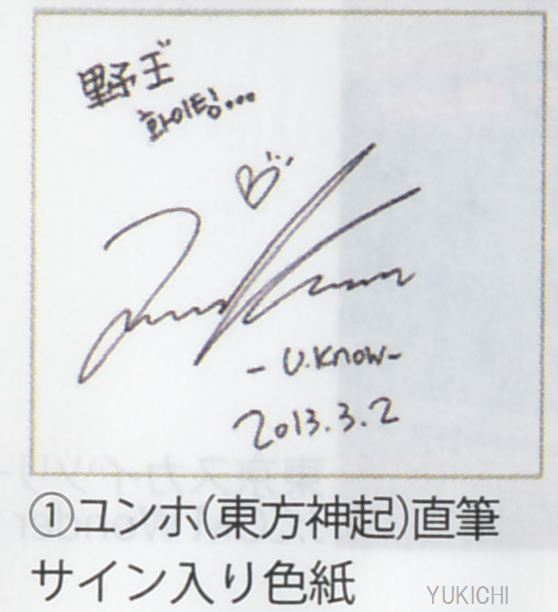 野王
화이팅...
- U.Know -
2013.3.2
①ユンホ(東方神起)直筆
サイン入り色紙
YUKICHI